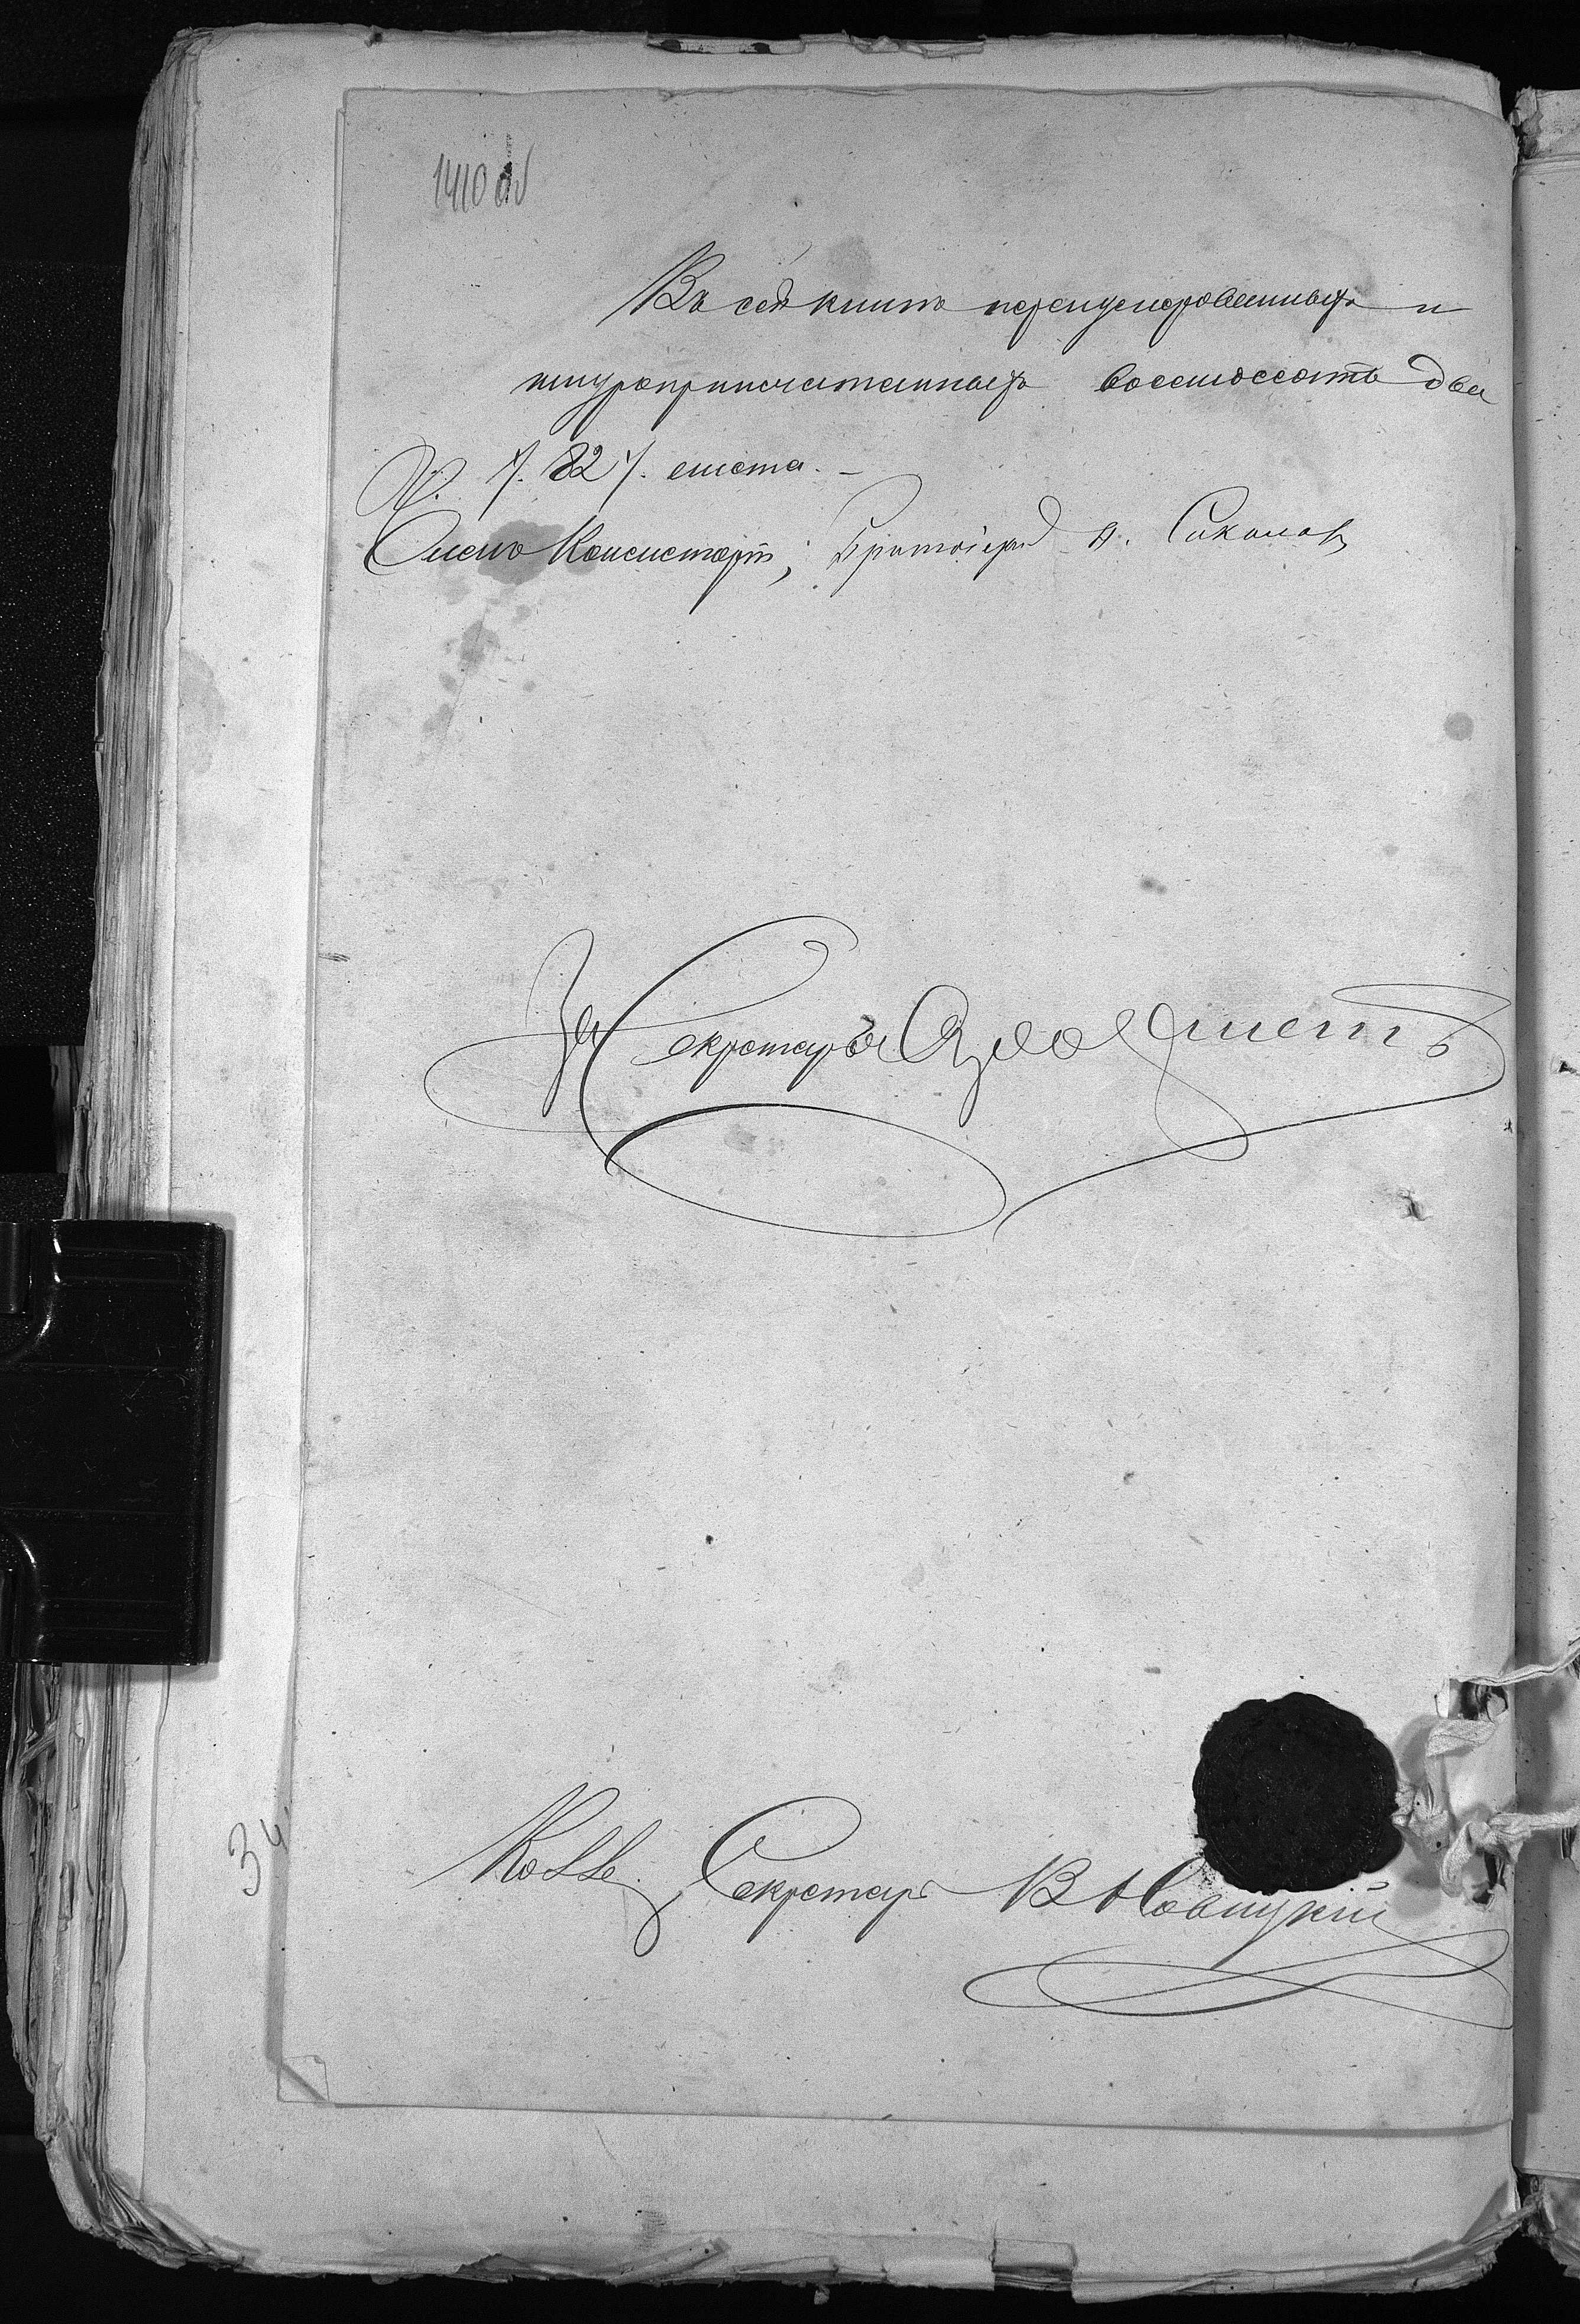 1410 об
Въ сей книгѣ перенумерованныхъ и
шнуроприпечатанныхъ восемьдесятъ два
/. 82 /. листа. –
Членъ Консисторіи, Протоіерей А. Соколовъ
За Секретаря
Колл. Секретарь В Новицкій
34